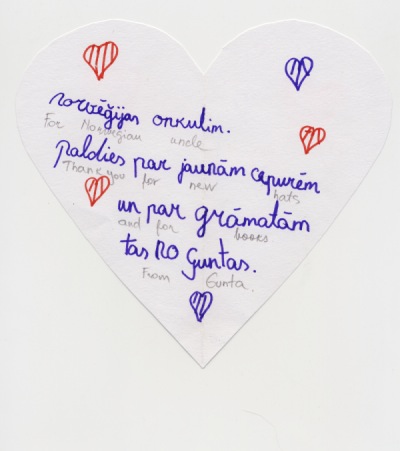 Norvēģijas onkulim.
For Norvegian uncle
Paldies par jaunām cepurēm
Thank you for new hats
un par grāmatām
and for books
tas no Guntas.
From Gunta.